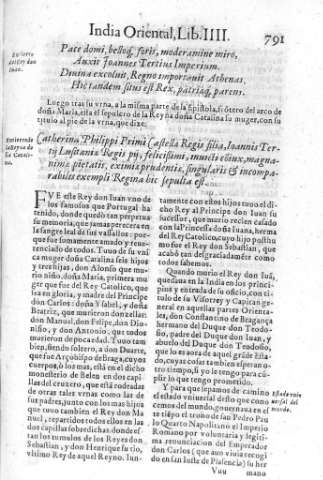 India Oriental, Lib. IIII. 791
Pace domi, belloq, foris, moderamine miro,
Auxit Joannes Tertius Imperium.
Divina excoluit, Regno importauit Athenas.
Hic tandem situs est Rex, patriæq, parens.
Luego tras su vrna, a la misma parte de la Epistola, so otro del arco de
doña Maria, esta el sepulcro de la Reyna doña Catalina su muger, con su
titulo al pie de la vrna, que dize:
Catherina Philippi Primi Castellæ Regis filia, Ioannis Ter-
tij Lusitaniæ Regis pij, felicissimi, inuicti cōiux, magna-
nima pietatis, eximia prudentiæ, singularis & incompa-
rabilis exempli Regina hic sepulta est.
FVE este Rey don Iuan vno de
los famosos que Portugal ha
tenido, donde quedò tan perpetua
su memoria, que jamas perecera en
la sangre leal de sus vassallos: por-
que fue sumamente amado y reue-
renciado de todos. Tuuo de su vni
ca muger doña Catalina seis hijos
y tres hijas, don Alonso que mu-
rio niño, doña Maria, primera mu
ger que fue del Rey Catolico, que
sea en gloria, y madre del Principe
don Carlos: doña Ysabel, y doña
Beatriz, que murieron donzellas:
don Manuel, don Felipe, don Dio-
nisio, y don Antonio: que todos
murieron de poca edad. Tuuo tam
bien, siendo soltero, a don Duarte,
que fue Arçobispo de Braga, cuyos
cuerpos, à los mas, està en el dicho
monesterio de Belen en dos capi-
llas del cruzero, que està rodeadas
de otras tales vrnas como las de
sus padres, junto con los mas hijos
que tuuo tambien el Rey don Ma
nuel, repartidos todos ellos en las
dos capillas sobredichas: donde es-
tan los tumulos de los Reyes don
Sebastian, y don Henrique su tio,
vltimo Rey de aquel Reyno. Iun-
tamente con estos hijos tuuo el di-
cho Rey al Principe don Iuan su
sucessor, que murio recien casado
con la Princesa doña Iuana, herma
del Rey Catolico, cuyo hijo posthu
mo fue el Rey don Sebastian, que
acabò tan desgraciadamēte como
todos sabemos.
Quando murio el Rey don Iuā,
quedaua en la India en los princi-
pios y entrada de su oficio, con ti-
tulo de su Visorrey y Capitan ge-
neral en aquellas partes Orienta-
les, don Constantino de Bragança
hermano del Duque don Teodo-
sio, padre del Duque don Iuan, y
abuelo del Duque don Teodosio,
que lo es aora de aquel grāde Esta-
do, cuyas cosas tambien esperan o-
tro tiempo, si yo le tengo para cū-
plir lo que tengo prometido.
Y para que sepamos de camino
el estado vniuersal desto que cono
cemos del mundo, gouernaua en el
tiēpo el trono de san Pedro Pau
lo Quarto Napolitano: el Imperio
Romano por voluntaria y legiti-
ma renunciacion del Emperador
don Carlos (que aun viuia recogi
do en san Iuste de Plasencia) su her
Vuu mano